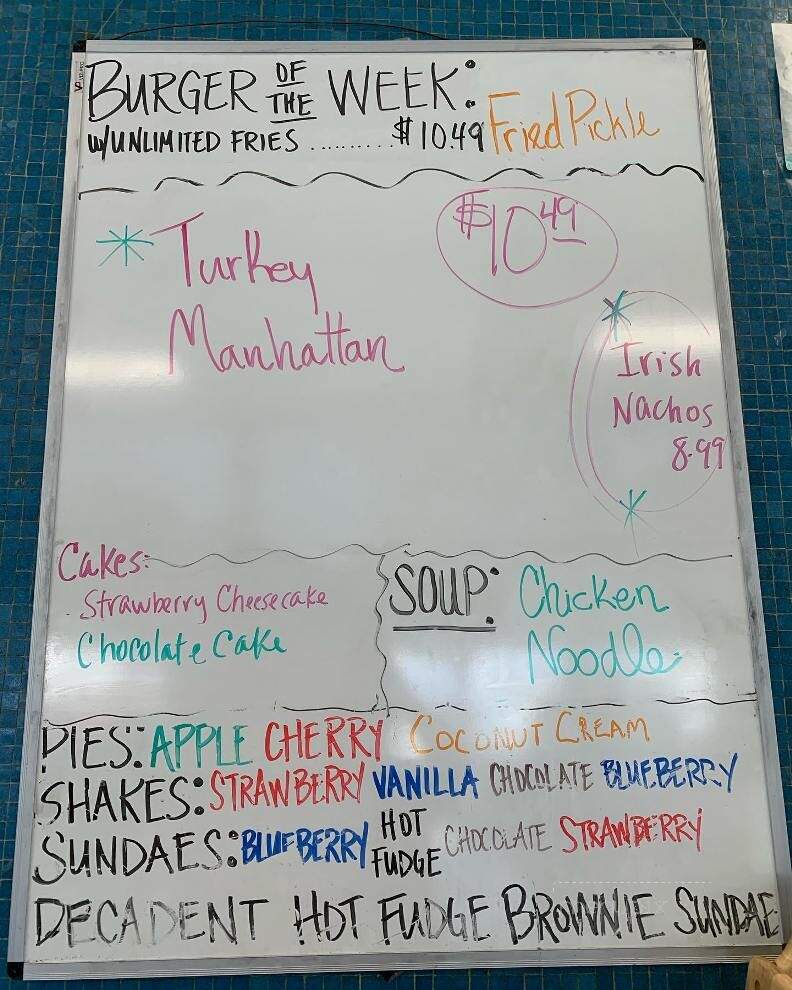 BURGER OF THE WEEK: Fried Pickle
W/UNLIMITED FRIES ......... $10.49
Turkey $10.49
Manhattan
Irish
Nachos
8.99
Cakes:
Strawberry Cheesecake
Chocolate Cake
SOUP: Chicken
Noodle
PIES: APPLE CHERRY COCONUT CREAM
SHAKES: STRAWBERRY VANILLA CHOCOLATE BLUEBERRY
SUNDAES: BLUEBERRY HOT FUDGE CHOCOLATE STRAWBERRY
DECADENT HOT FUDGE BROWNIE SUNDAE